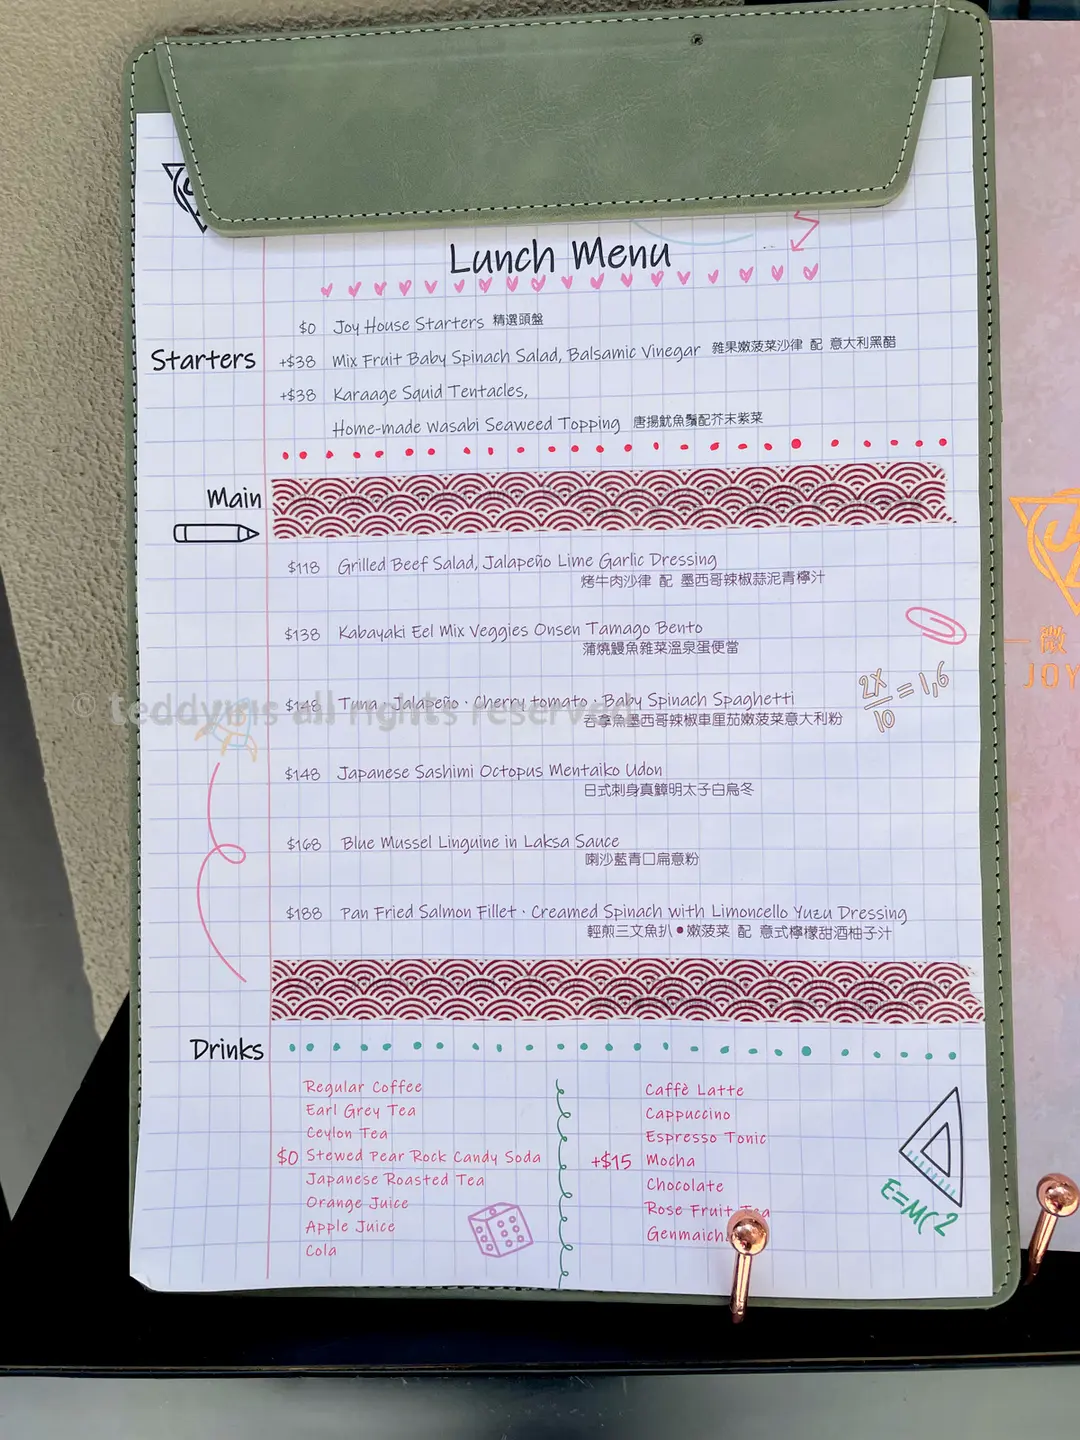 Lunch Menu
Starters
$0 Joy House Starters 精選頭盤
+$38 Mix Fruit Baby Spinach Salad, Balsamic Vinegar 雜果嫩菠菜沙律 配 意大利黑醋
+$38 Karaage Squid Tentacles,
Home-made Wasabi Seaweed Topping 唐揚魷魚鬚配芥末紫菜
Main
$118 Grilled Beef Salad, Jalapeño Lime Garlic Dressing
烤牛肉沙律 配 墨西哥辣椒蒜泥青檸汁
$138 Kabayaki Eel Mix Veggies Onsen Tamago Bento
蒲燒鰻魚雜菜溫泉蛋便當
$148 Tuna · Jalapeño · Cherry tomato · Baby Spinach Spaghetti
吞拿魚墨西哥辣椒車厘茄嫩菠菜意大利粉
2x/10 = 1,6
© teddymis all rights reserved
$148 Japanese Sashimi Octopus Mentaiko Udon
日式刺身真鱆明太子白烏冬
$168 Blue Mussel Linguine in Laksa Sauce
喇沙藍青口扁意粉
$188 Pan Fried Salmon Fillet · Creamed Spinach with Limoncello Yuzu Dressing
輕煎三文魚扒•嫩菠菜 配 意式檸檬甜酒柚子汁
Drinks
Regular Coffee
Earl Grey Tea
Ceylon Tea
$0 Stewed Pear Rock Candy Soda
Japanese Roasted Tea
Orange Juice
Apple Juice
Cola
Caffè Latte
Cappuccino
Espresso Tonic
+$15 Mocha
Chocolate
Rose Fruit Tea
E=MC2
微
JOY